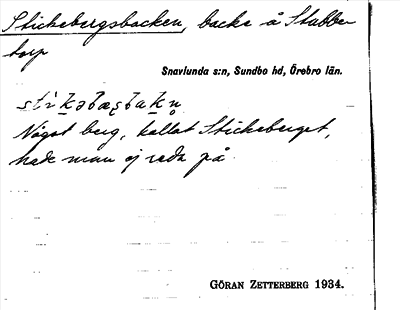 Stickebergsbacken, backe å Stubbe-
torp
Snavlunda s:n, Sundbo hd, Örebro län.
Något berg, kallat Stickeberget,
hade man ej reda på.
GÖRAN ZETTERBERG 1934.